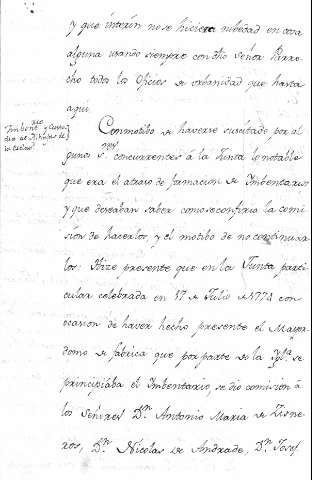 y que interin no se hiciera nobedad en cosa
alguna usando siempre con dho Señor Parro-
cho todos los Oficios de urbanidad que hasta
aqui.
Con motibo de haverse suscitado por al
gunos Sres concurrentes á la Junta lo notable
que era el atraso de formacion de Imbentario
y que deseaban saber como se confiria la comi
sion de hacerlos, y el motibo de no continuar
los: Hize presente que en la Junta parti
cular celebrada en 17 de Julio de 1774 con
ocasion de haver hecho presente el Mayor
domo de fabrica que por parte de la Ygla. se
principiába el Imbentario, se dio comision á
los Señores Dn. Antonio Maria de Zisne
ros, Dn. Nicolas de Andrade, Dn. Josef
Imbentrio y Custo
dia de Alhajas de